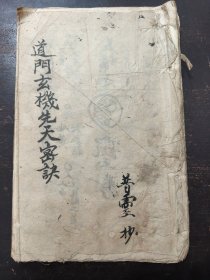 道門玄機先天密訣
普雲抄